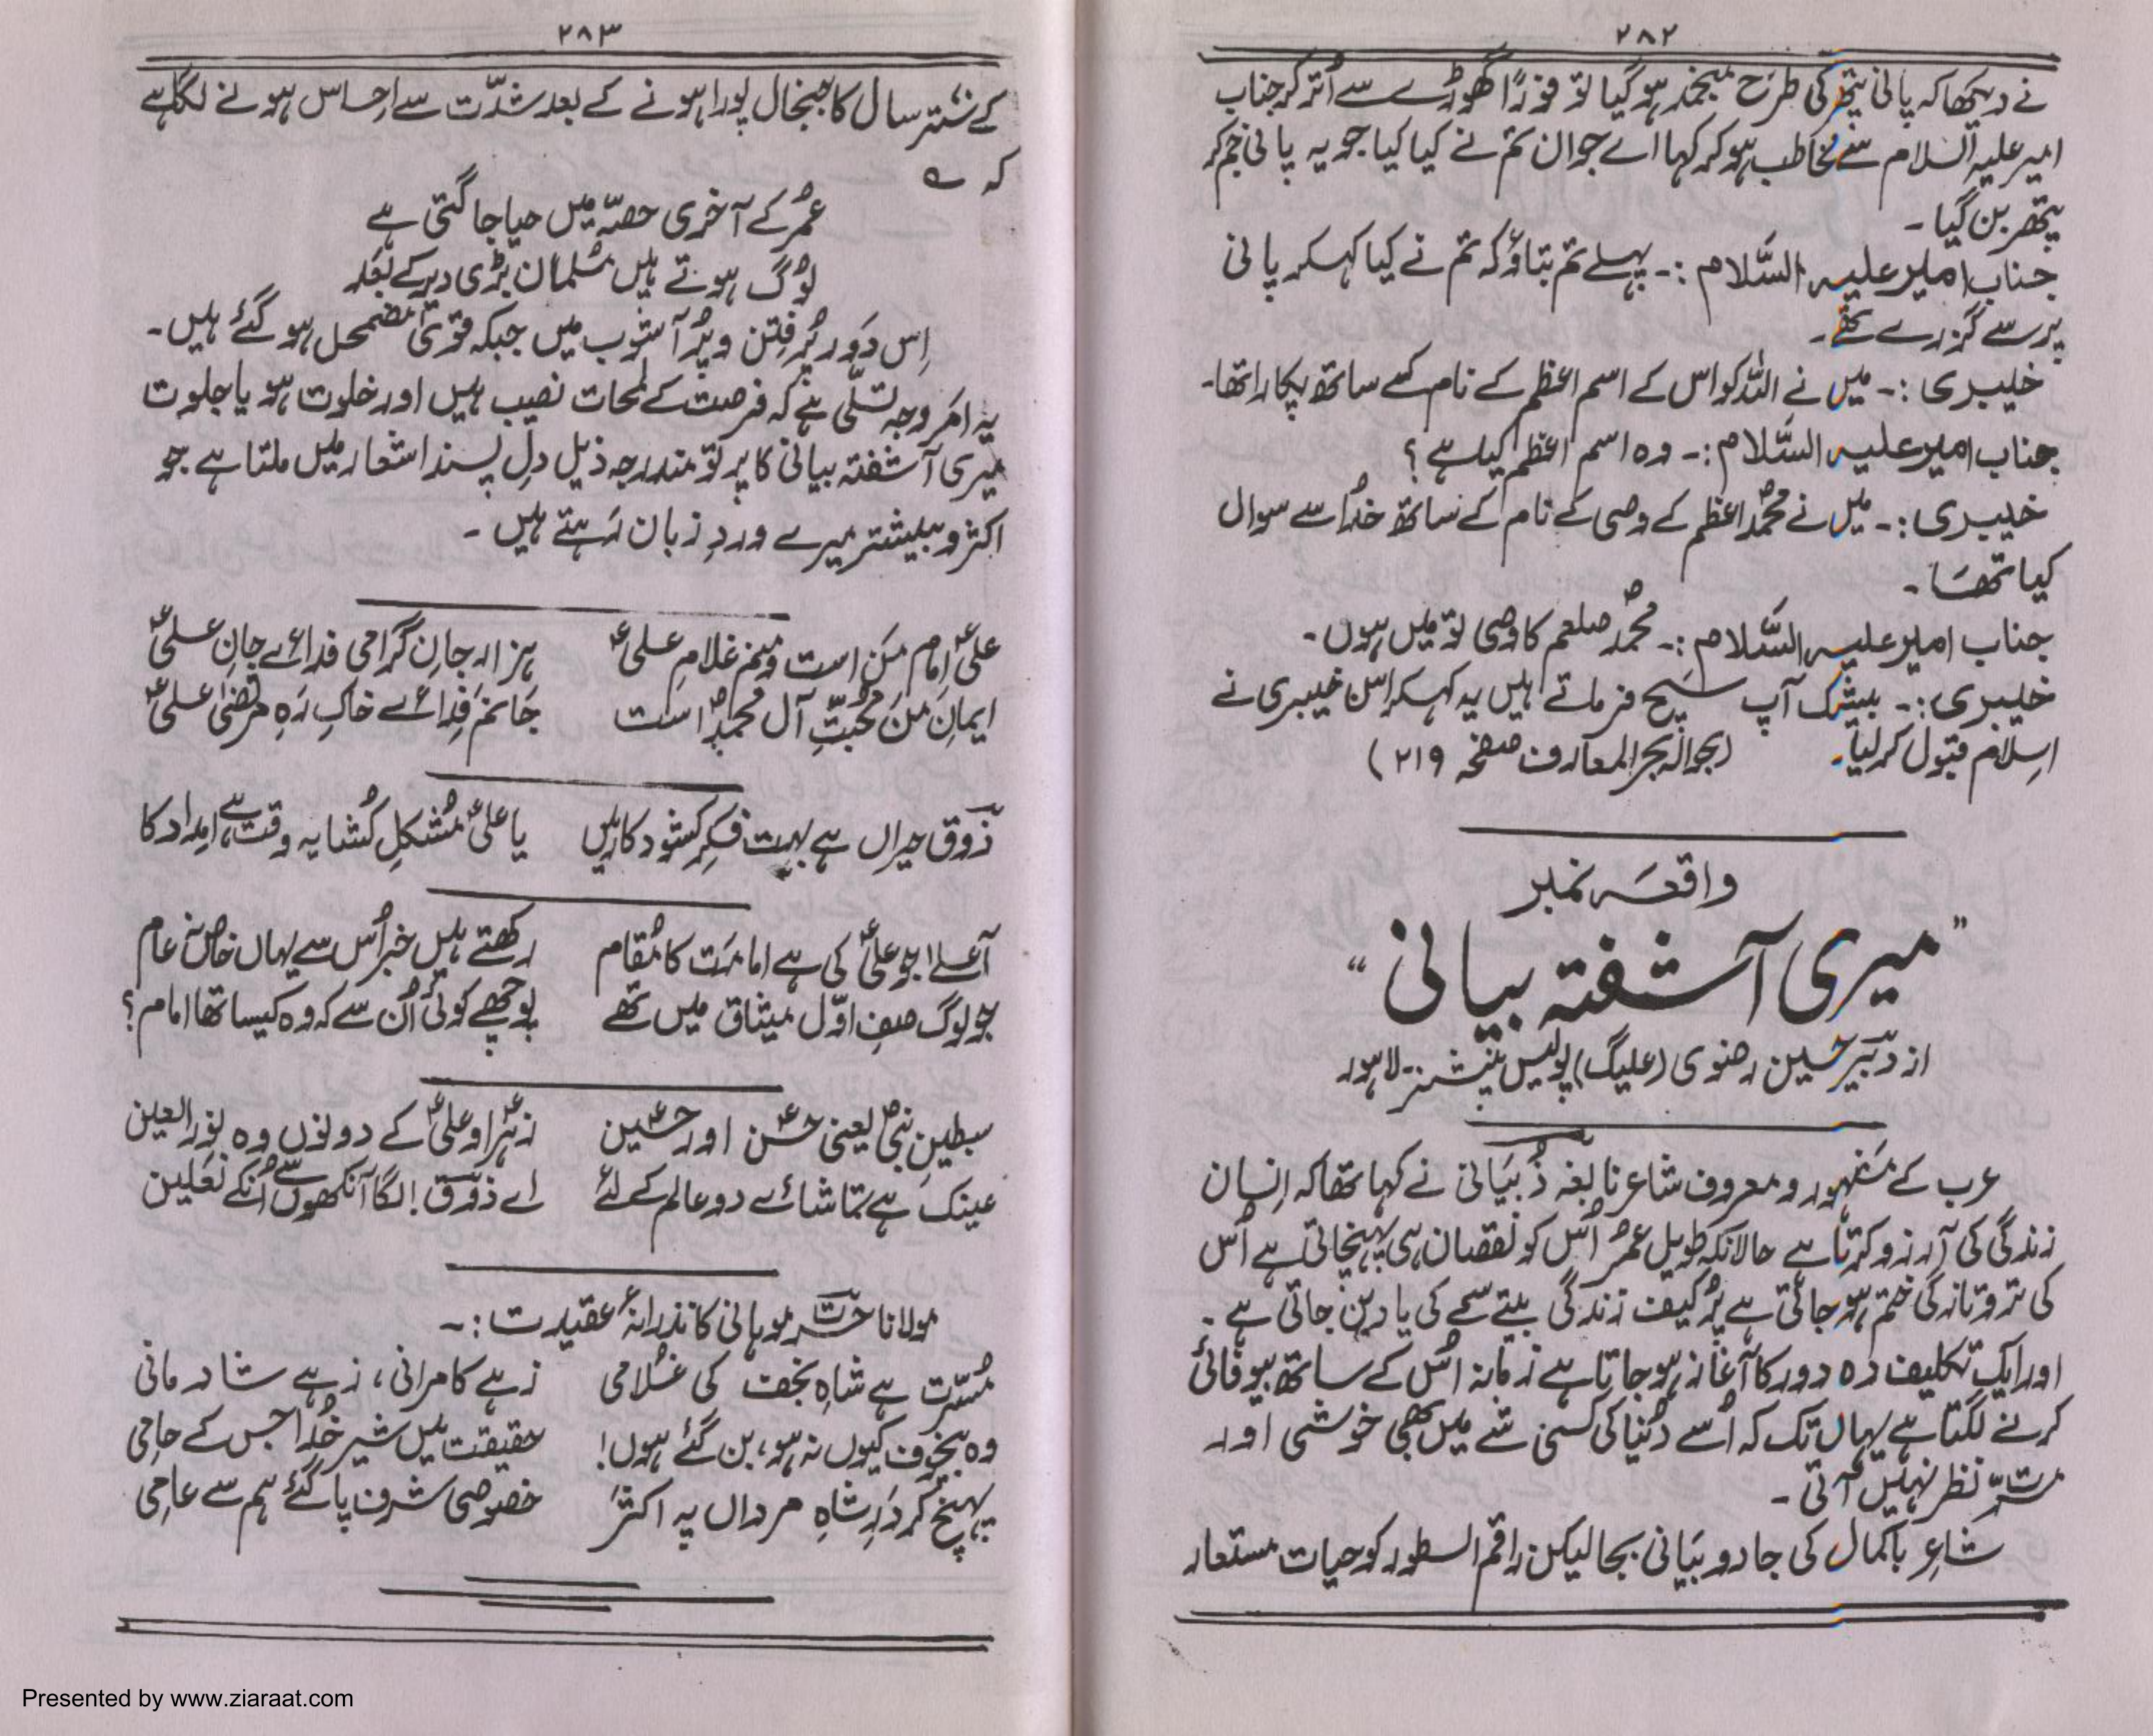 ۲۸۲
نے دیکھا کہ پانی پتھر کی طرح منجمد ہو گیا تو فوراً گھوڑے سے اُتر کر جناب
امیر علیہ السلام سے مخاطب ہو کر کہا اے جوان تم نے کیا کیا جو یہ پانی جم کر
پتھر بن گیا ۔
جناب امیر علیہ السَّلام :۔ پہلے تم بتاؤ کہ تم نے کیا کہکر پانی
پر سے گزرے تھے۔
خیبری :۔ میں نے اللہ کو اس کے اسم اعظم کے نام کے ساتھ پکارا تھا۔
جناب امیر علیہ السَّلام :۔ وہ اسم اعظم کیا ہے ؟
خیبری :۔ میں نے محمدؐ اعظم کے وصی کے نام کے ساتھ خدا سے سوال
کیا تھا ۔
جناب امیر علیہ السَّلام :۔ محمدؐ صلعم کا وصی تو میں ہوں ۔
خیبری :۔ بیشک آپ سچ فرماتے ہیں یہ کہکر اس خیبری نے
اسلام قبول کر لیا۔ (بحوالہ بحر المعارف صفحہ ۲۱۹)
واقعہ نمبر
”میری آشفتہ بیانی“
از دبیر حسین رضوی (علیگ) پولیس پنشنر۔ لاہور
عرب کے مشہور و معروف شاعر نابغہ ذُبیانی نے کہا تھا کہ اِنسان
زندگی کی آرزو کرتا ہے حالانکہ طویل عمر اُس کو نقصان ہی پہنچاتی ہے اُس
کی تروتازگی ختم ہو جاتی ہے پُر کیف زندگی بیتے سمے کی یاد بن جاتی ہے ۔
اور ایک تکلیف دہ دور کا آغاز ہو جاتا ہے زمانہ اس کے ساتھ بیوفائی
کرنے لگتا ہے یہاں تک کہ اُسے دُنیا کی کسی شے میں بھی خوشی اور
مسرّت نظر نہیں آتی ۔
شاعرِ باکمال کی جادو بیانی بجا لیکن راقم السطور کو حیات مستعار
۲۸۳
کے ستتر سال کا جنجال پورا ہونے کے بعد شدّت سے احساس ہونے لگا ہے
کہ ؎
عمر کے آخری حصّہ میں حیا جاگتی ہے
لوگ ہوتے ہیں مسلمان بڑی دیر کے بعد
اِس دَور پُر فِتن و پُر آشوب میں جبکہ قویٰ مضمحل ہو گئے ہیں۔
یہ امر وجہ تسلّی ہے کہ فرصت کے لمحات نصیب ہیں اور خلوت ہو یا جلوت
میری آشفتہ بیانی کا پرتو مندرجہ ذیل دل پسند اشعار میں ملتا ہے جو
اکثر و بیشتر میرے وردِ زبان رہتے ہیں ۔
علیؑ امام من است و منم غلامِ علیؑ ہزار جانِ گرامی فدائے جانِ علیؑ
ایمانِ من محبّتِ آل محمدؐ است جانم فدائے خاکِ رہِ مرتضیٰ علیؑ
ذوق حیراں ہے بہت فکرِ کشود کار میں یا علیؑ مُشکل کُشا یہ وقت ہے امداد کا
اَعلےٰ جو علیؑ کی ہے امامت کا مُقام رکھتے ہیں خبر اُس سے یہاں خاص نہ عام
جو لوگ صفِ اوّل میثاق میں تھے پوچھے کوئی اُن سے کہ وہ کیسا تھا امام؟
سبطینِ نبیؐ یعنی حسنؑ اور حسینؑ زہراؑ و علیؑ کے دونوں وہ نور العین
عینک ہے تماشائے دو عالم کے لئے اے ذوق ! لگا آنکھوں سے اُنکے نعلین
مولانا حسرت موہانی کا نذرانۂ عقیدت :۔
مُسرّت ہے شاہِ نجف کی غلامی زہے کامرانی، زہے شادمانی
وہ بیخوف کیوں نہ ہو، بن گئے ہوں! حقیقت میں شیرِ خُدا جس کے حامی
پہنچ کر درِ شاہِ مرداں پہ اکثر خصوصی شرف پا گئے ہم سے عامی
Presented by www.ziaraat.com